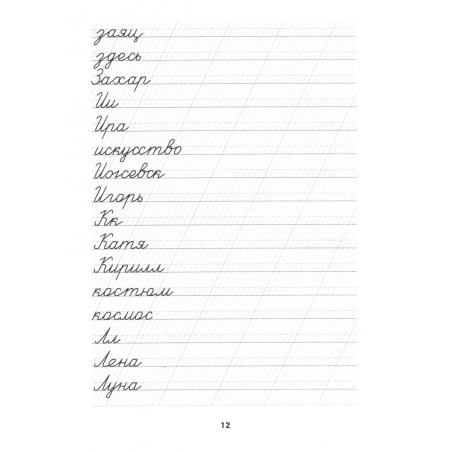 заяц
здесь
Захар
Ии
Ира
искусство
Ижевск
Игорь
Кк
Катя
Кирилл
костюм
космос
Лл
Лена
Луна
12